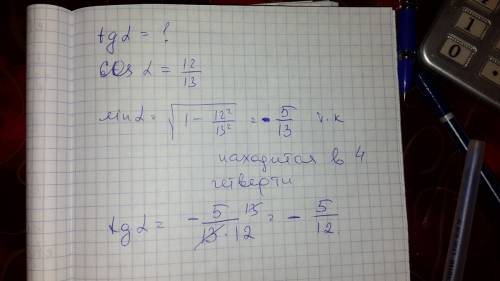 tg α = ?
cos α = 12/13
sin α = √(1 - 12²/13²) = - 5/13 т.к
находится в 4
четверти
tg α = - 5 13/13 · 12 = - 5/12
1
0